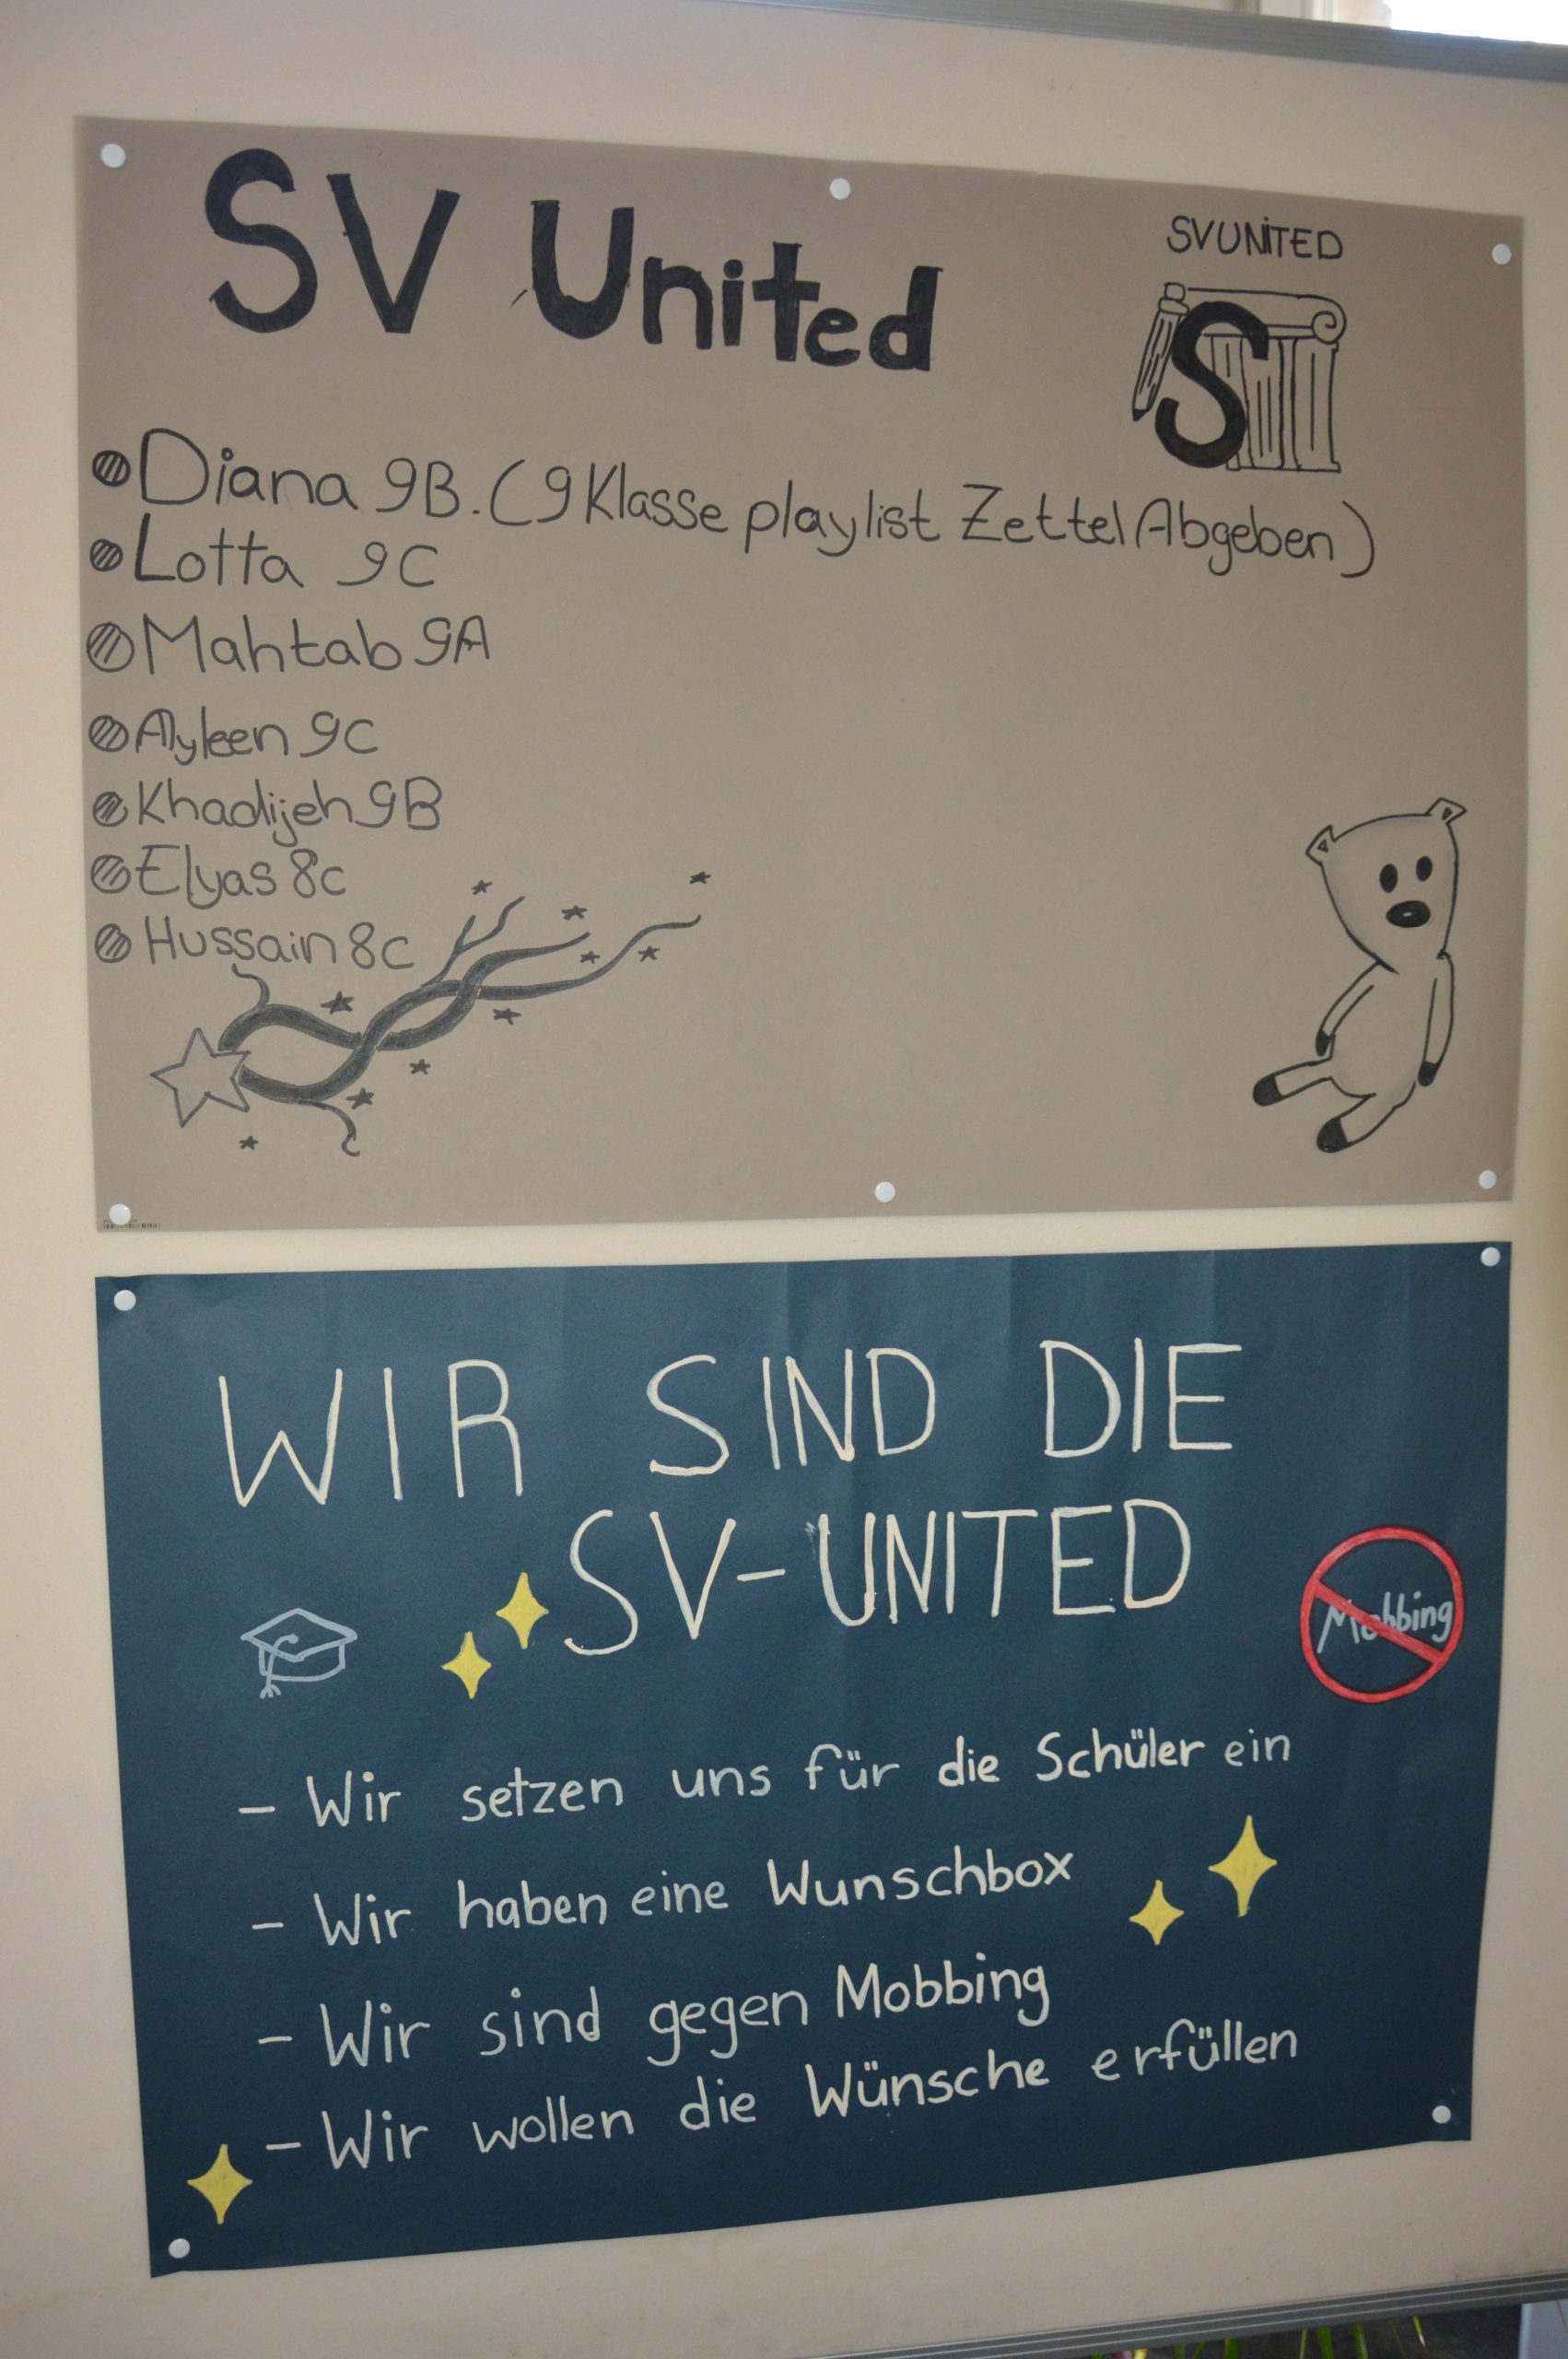 SV United
SVUNITED
S
Diana 9B. (9 Klasse playlist Zettel Abgeben)
Lotta 9C
Mahtab 9A
Ayleen 9C
Khadijeh 9B
Elyas 8c
Hussain 8c
WIR SIND DIE
SV-UNITED
Mobbing
- Wir setzen uns für die Schüler ein
- Wir haben eine Wunschbox
- Wir sind gegen Mobbing
- Wir wollen die Wünsche erfüllen